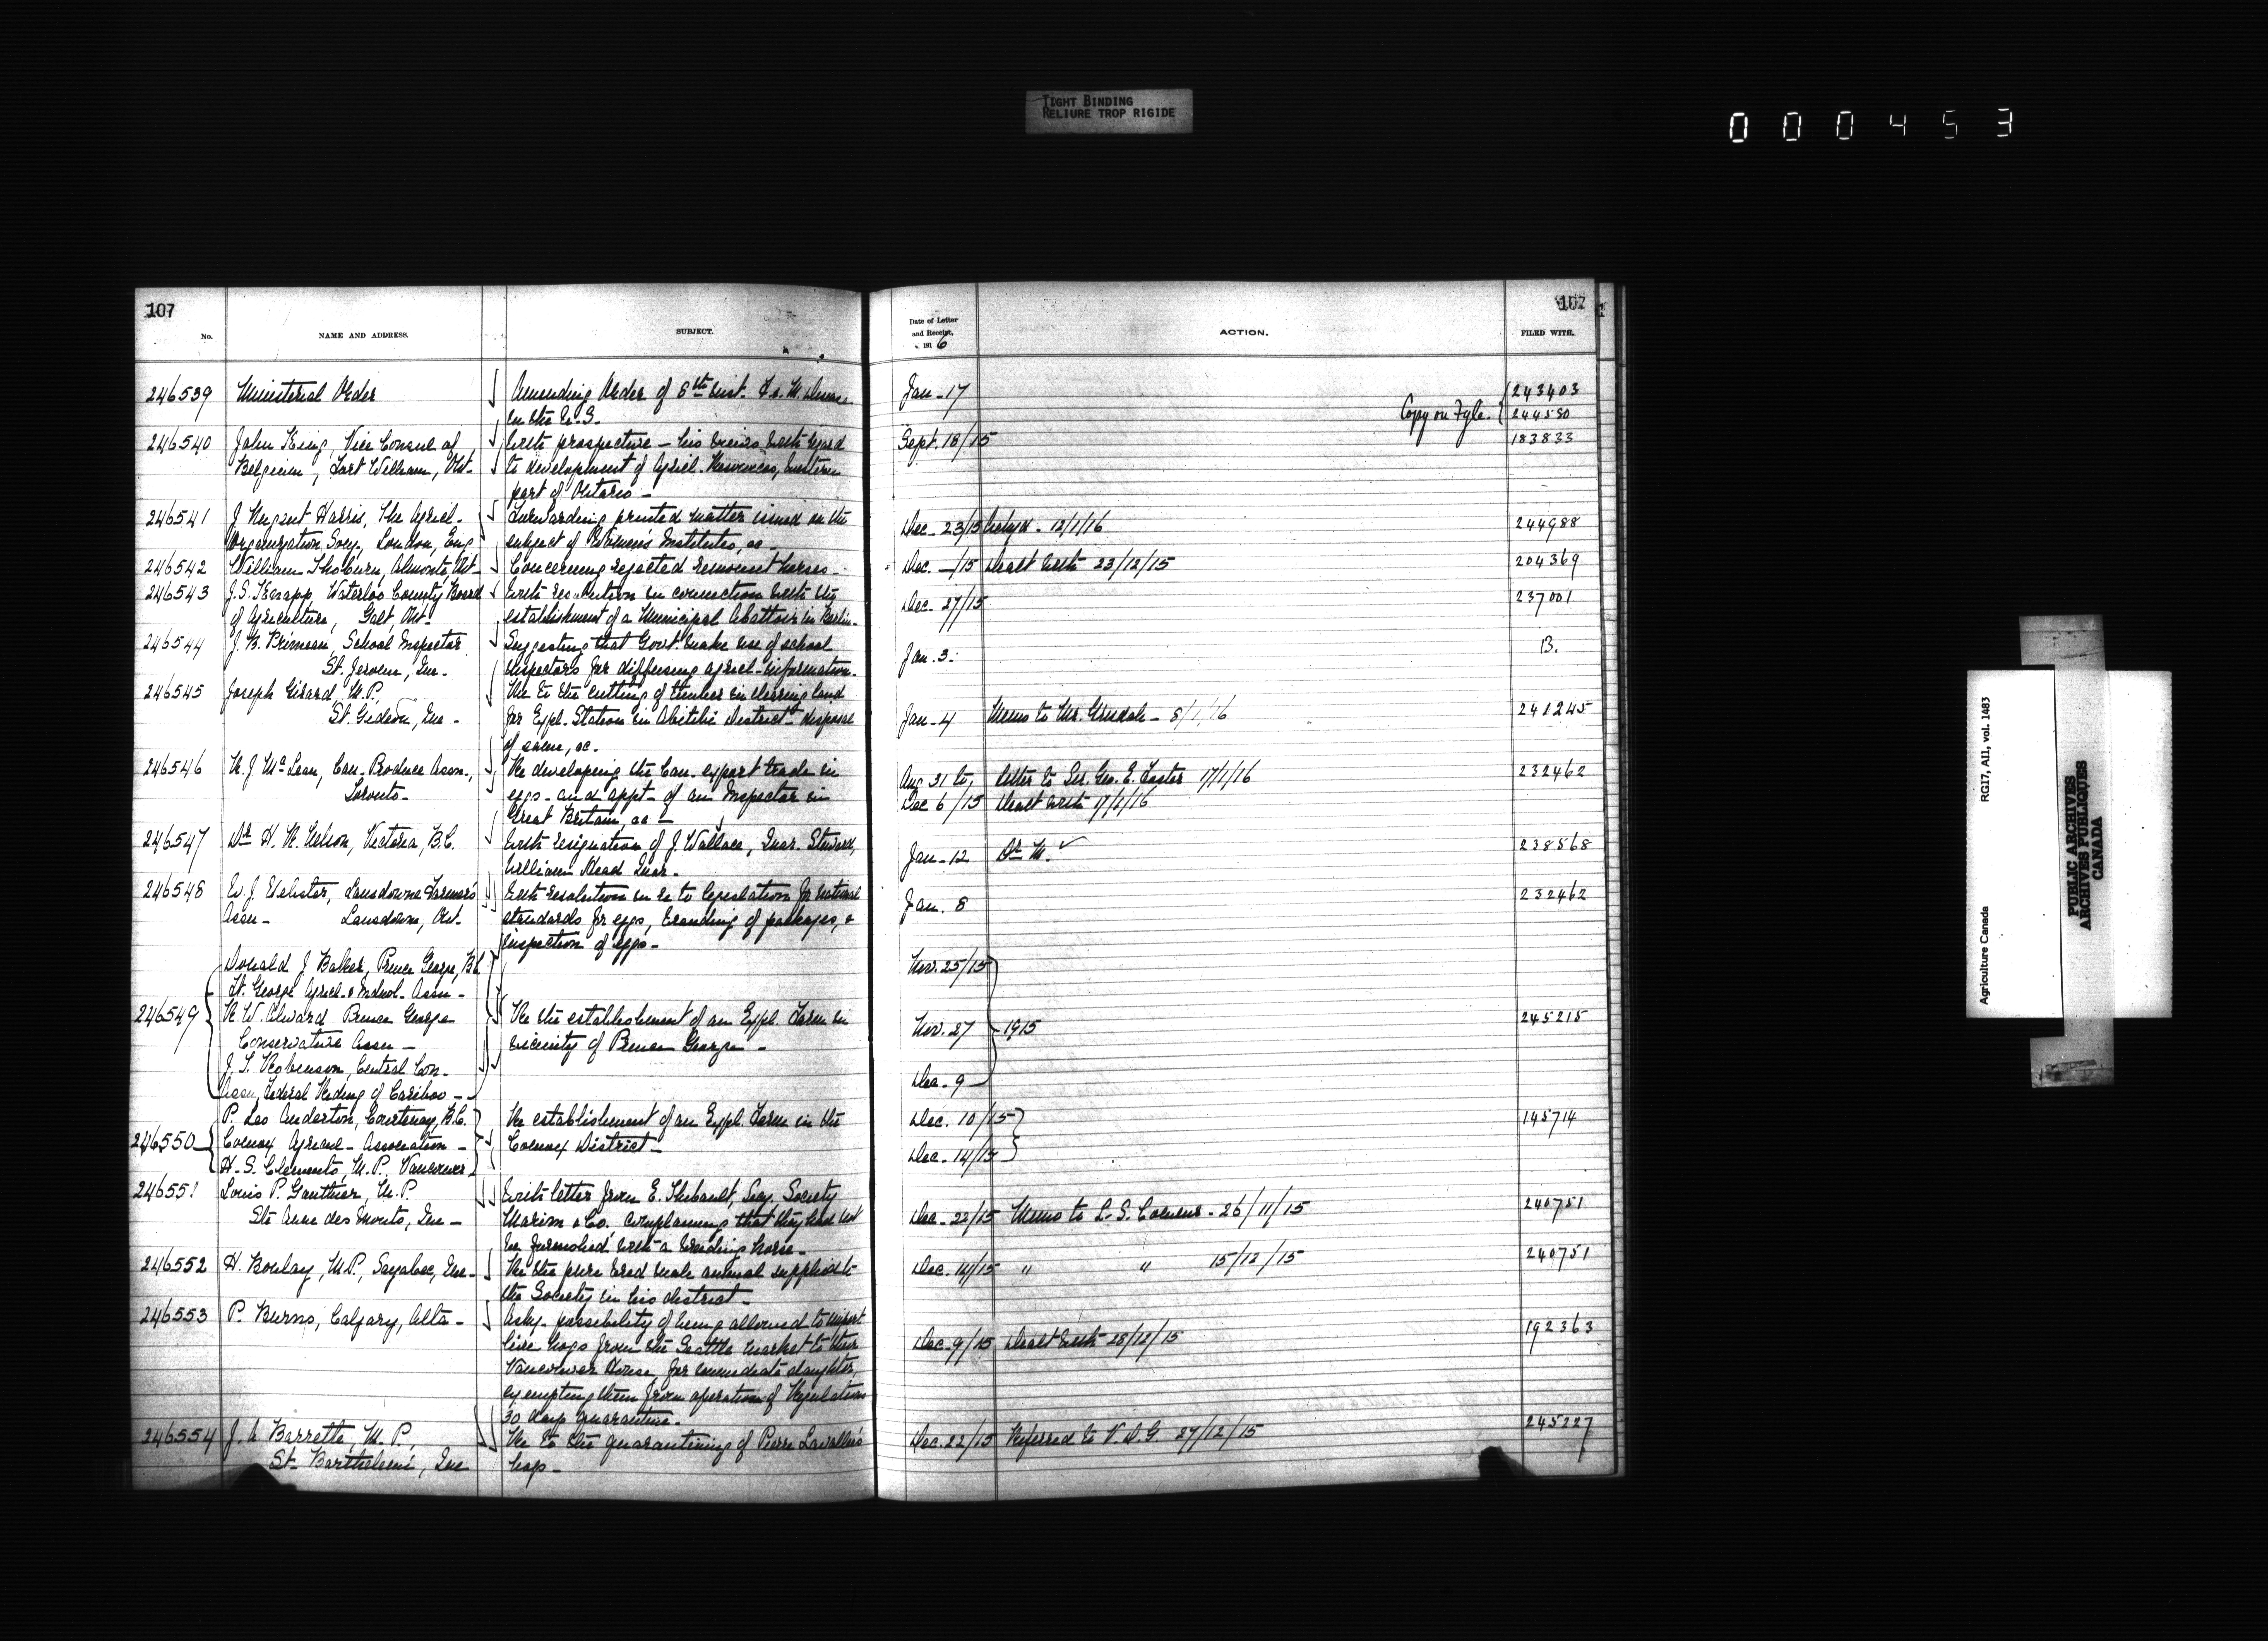 TIGHT BINDING
RELIURE TROP RIGIDE
000453
107
No.
NAME AND ADDRESS.
SUBJECT.
246539 Ministerial Order
Amending Order of 8th inst. F. & M. Disease
in the U.S.
246540 John King, Vice Consul of
Belgium, Fort William, Ont-
With prospectus - his views with regard
to development of Agricl. Resources, Western
part of Ontario -
246541 J Nugent Harris, The Agricl-
Organization Socy, London, Eng
Forwarding printed matter issued on the
subject of Womens Institutes, &c -
246542 William Thoburn, Almonte, Ont-
Concerning rejected remount horses -
246543 J.S. Knapp, Waterloo County Board
of Agriculture, Galt, Ont-
With resolution in connection with the
establishment of a Municipal Abattoir in Berlin-
246544 J. B. Primeau, School Inspector
St. Jerome, Que -
Suggesting that Govt. make use of school
inspectors for diffusing agricl- information-
246545 Joseph Girard M.P.
St. Gedeon, Que -
Re to the cutting of timber in clearing land
for Expl. Station in Abitibi District - disposal
of same, &c.
246546 J McLean, Can- Produce Assn.,
Toronto-
Re developing the Can- export trade in
eggs - and appt- of an Inspector in
Great Britain, &c -
246547 Dr H. Victoria, B.C.
With resignation of J. Wallace, Quar. Steward,
William Head Quar.
246548 W. J. Webster, Lansdowne Farmers
Assn - Lansdown, Ont-
With resolution in re to legislation for national
standards for eggs, branding of packages, &
inspection of eggs -
246549
Donald J Balker, Prince George, B.C.
Ft. George Agricl- & Indusl- Assn -
W. Alward Prince George
Conservative Assn -
J. T. Robinson, Central Con-
Assn, Federal Riding of Cariboo -
Re the establishment of an Expl. Farm in
vicinity of Prince George -
246550
P. Leo Anderton, Courtenay, B.C.
Comox Agricul- Association -
H. S. Clements, M.P. Vancouver
Re establishment of an Expl. Farm in the
Comox District -
246551 Louis P. Gauthier, M.P.
Ste Anne des Monts, Que -
With letter from E. Thibault, Secy. Society
& Co. complaining that they had not
be furnished with a breeding horse -
246552 H. Boulay, M.P., Sayabec, Que -
Re the pure bred male animal supplied to
the Society in his district -
246553 P. Burns, Calgary, Alta -
Askg- possibility of being allowed to import
live hogs from the Seattle market to their
Vancouver House for immediate slaughter,
exempting them from operation of Regulations
30 days quarantine -
246554 J. A Barrette, M.P.
St- Barthelemi, Que
Re to the quarantining of Pierre Lavallée's
hogs -
107
Date of Letter
and Receipt,
1916
ACTION.
FILED WITH.
Jan - 17
Copy on Fyle.
243403
244580
Sept. 18/15 183833
Dec - 23/15 Ackgd - 12/1/16 244988
Dec. -/15 Dealt with 23/12/15 204369
Dec - 27/15 237001
Jan. 3. B.
Jan - 4 Memo to Mr. Grisdale - 8/1/16 241245
Aug 31 to, letter to Sir Geo. E. Foster 17/1/16 232462
Dec 6/15 Dealt with 17/1/16
Jan - 12 Dr. 238568
Jan. 8 232462
Nov. 25/15
Nov. 27 1915 245215
Dec - 9
Dec. 10/15 145714
Dec - 14/15
Dec - 22/15 Memo to L. S. - 26/11/15 240751
Dec. 14/15 " " 15/12/15 240751
Dec - 9/15 Dealt with 28/12/15 192363
Dec. 22/15 Referred to V. D. G. 27/12/15 245227
Agriculture Canada RG17, AII, vol. 1483
PUBLIC ARCHIVES
ARCHIVES PUBLIQUES
CANADA